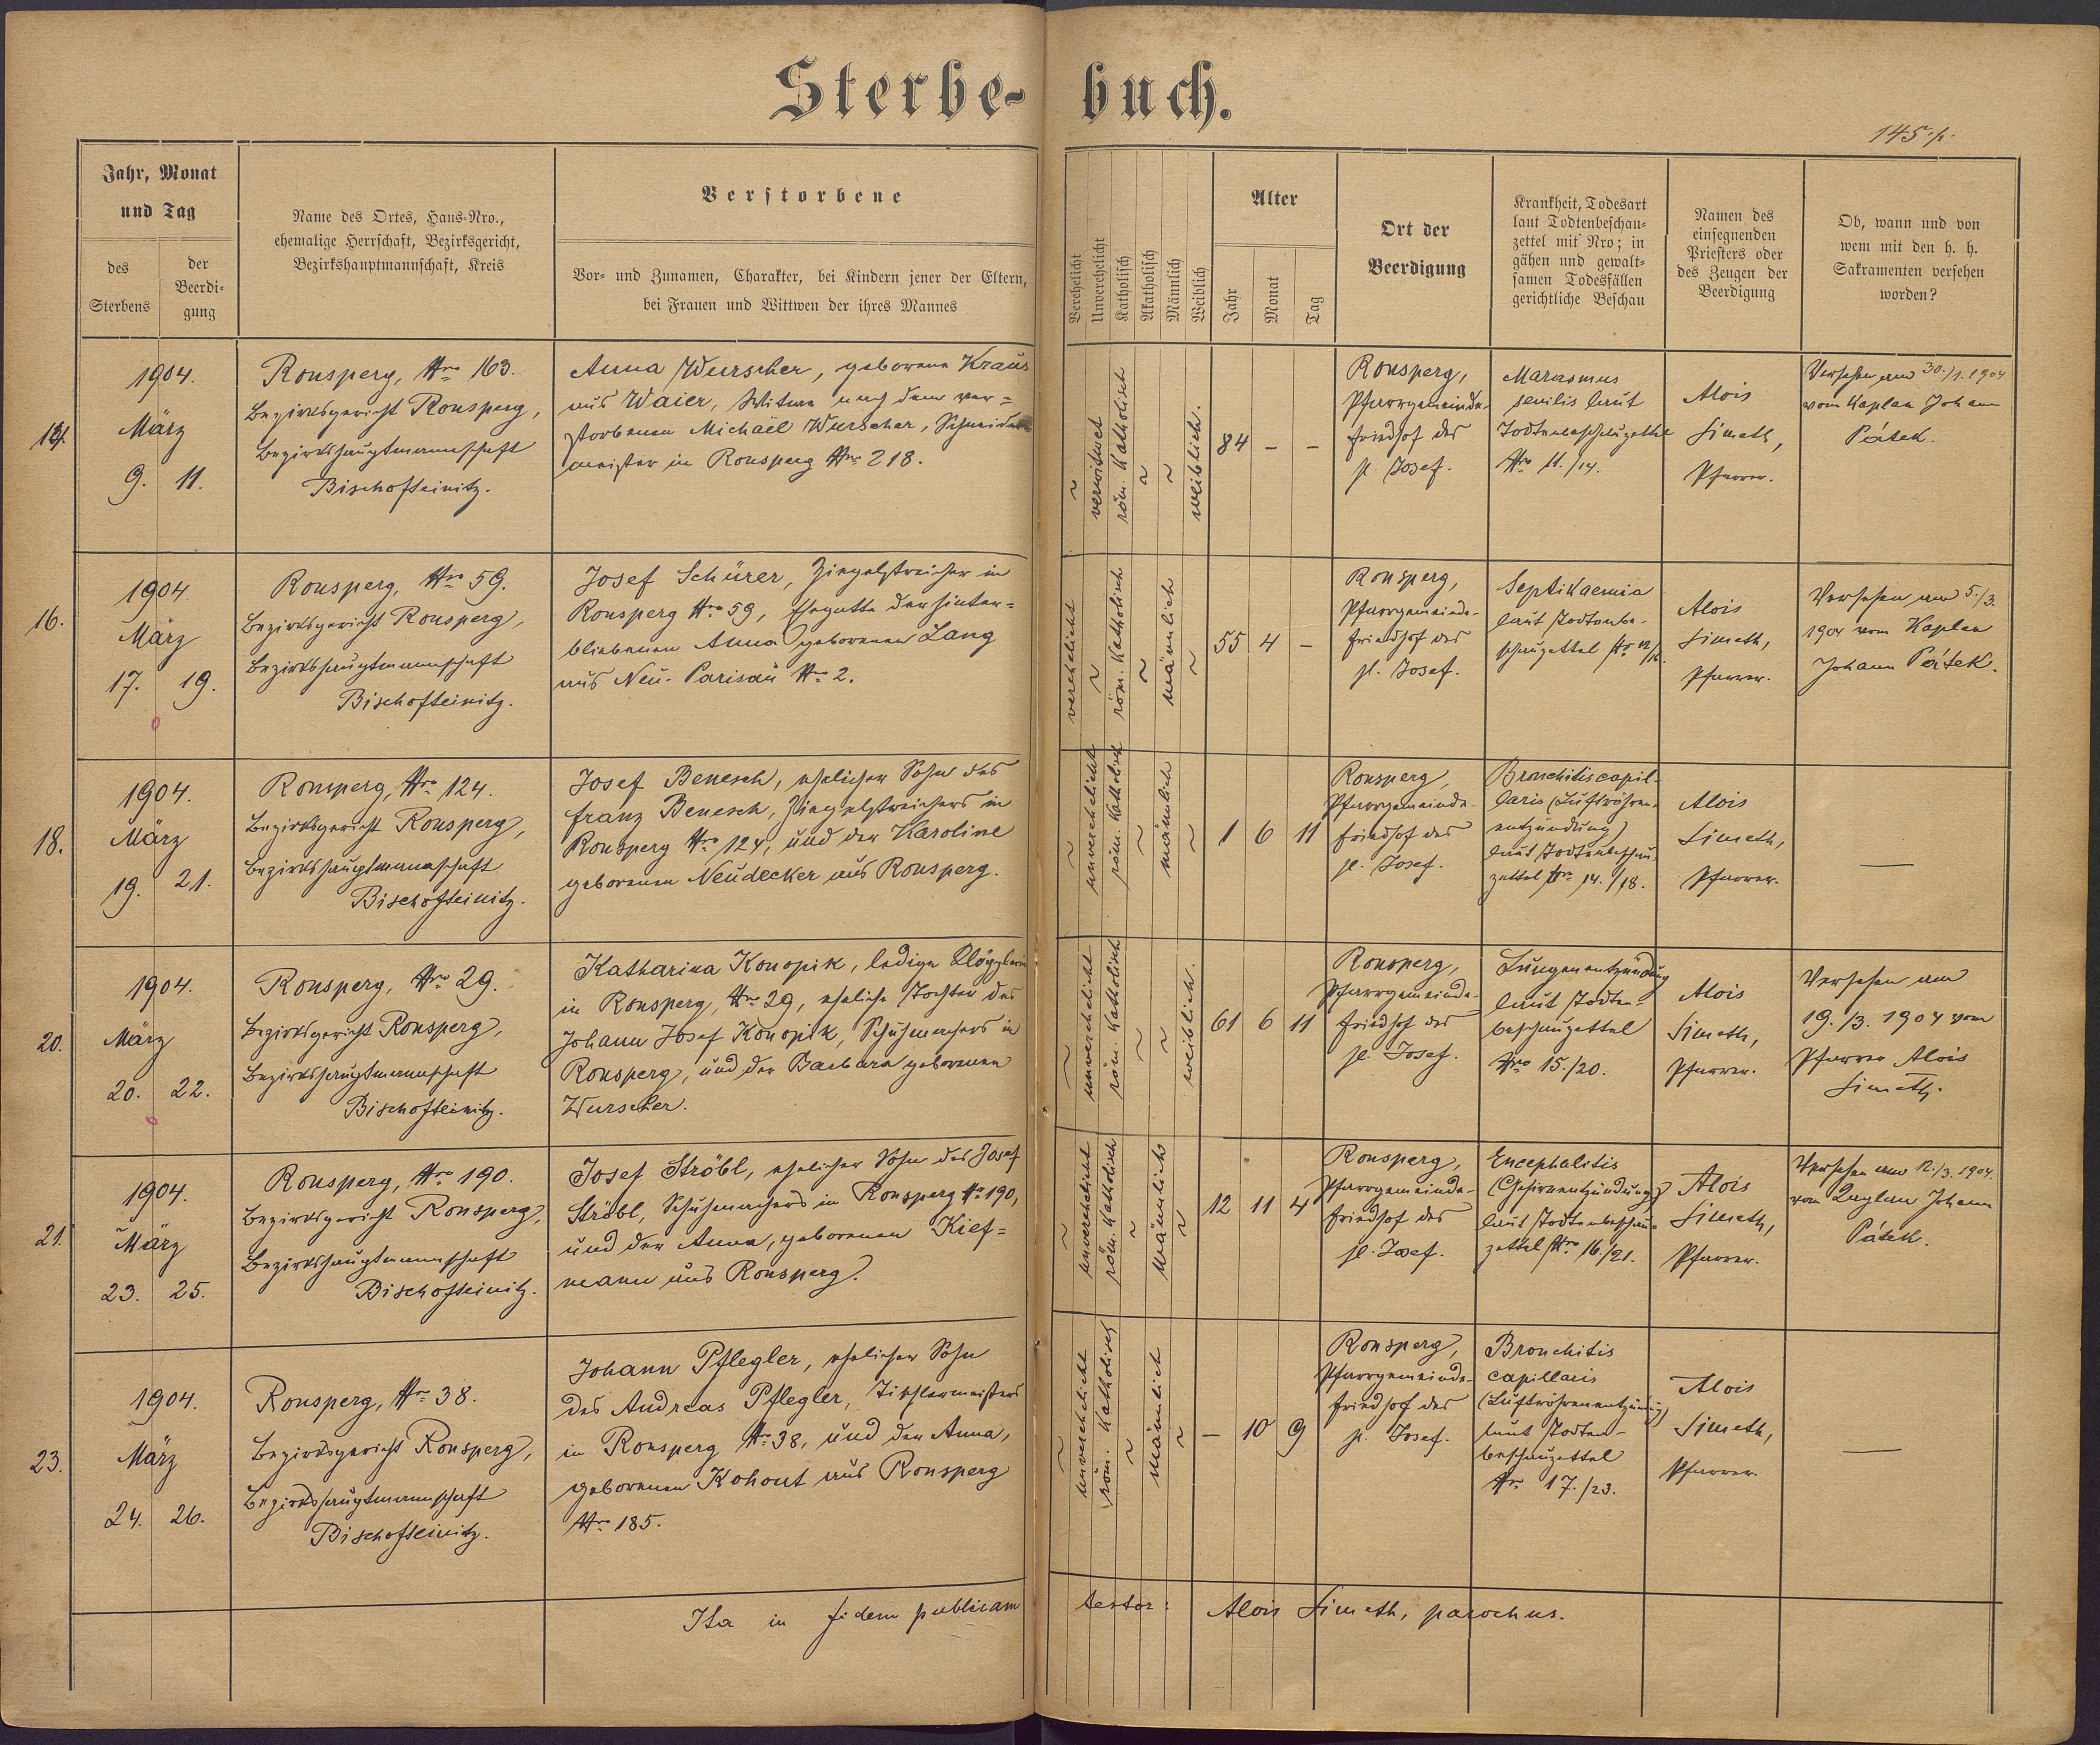 Sterbe-buch.
145. p.
Jahr, Monat
und Tag
des
Sterbens
der
Beerdi-
gung
Name des Ortes, Haus-Nro.,
ehemalige Herrschaft, Bezirksgericht,
Bezirkshauptmannschaft, Kreis
Verstorbene
Vor- und Zunamen, Charakter, bei Kindern jener der Eltern,
bei Frauen und Wittwen der ihres Mannes
Verehelicht
Unverehelicht
Katholisch
Akatholisch
Männlich
Weiblich
Alter
Jahr
Monat
Tag
Ort der
Beerdigung
Krankheit, Todesart
laut Todtenbeschau-
zettel mit Nro; in
gähen und gewalt-
samen Todesfällen
gerichtliche Beschau
Namen des
einsegnenden
Priesters oder
des Zeugen der
Beerdigung
Ob, wann und von
wem mit den h. h.
Sakramenten versehen
worden?
14.
1904.
März
9. 11.
Ronsperg, Nro 163.
Bezirksgericht Ronsperg,
Bezirkshauptmannschaft
Bischofteinitz.
Anna Wurscher, geborene Kraus
aus Waier, Witwe nach dem ver=
storbenen Michael Wurscher, Schneider
meister in Ronsperg Nro 218.
~
verwitwet
röm. katholisch
~
~
weiblich.
84 - -
Ronsperg,
Pfarrgemeinde-
friedhof des
hl. Josef.
Marasmus
senilis laut
Todtenbeschauzettel
Nro 11./14.
Alois
Simeth,
Pfarrer.
Versehen am 30./1. 1904
vom Kaplan Johann
Pátek.
16.
1904
März
17. 19.
Ronsperg, Nro 59.
Bezirksgericht Ronsperg,
Bezirkshauptmannschaft
Bischofteinitz.
Josef Schürer, Ziegelstreicher in
Ronsperg Nro 59, Ehegatte der hinter=
bliebenen Anna geborenen Lang
aus Neu-Parisau Nro 2.
verehelicht
~
röm. katholisch
~
männlich
~
55 4 -
Ronsperg,
Pfarrgemeinde-
friedhof des
hl. Josef.
Septikaemia
laut Todtenbe-
schauzettel Nr 12/16.
Alois
Simeth,
Pfarrer.
Versehen am 5./3.
1904 vom Kaplan
Johann Pátek.
18.
1904.
März
19. 21.
Ronsperg, Nro 124.
Bezirksgericht Ronsperg,
Bezirkshauptmannschaft
Bischofteinitz.
Josef Benesch, ehelicher Sohn des
Franz Benesch, Ziegelstreichers in
Ronsperg Nro 124, und der Karoline
geborenen Neudecker aus Ronsperg.
~
unverehelicht
röm. katholisch
~
männlich
~
1 6 11
Ronsperg,
Pfarrgemeinde-
friedhof des
hl. Josef.
Bronchitis capil-
laris (Luftröhren-
entzündung)
laut Todtenbeschau-
zettel Nro 14./18.
Alois
Simeth,
Pfarrer.
—
20.
1904.
März
20. 22.
Ronsperg, Nro 29.
Bezirksgericht Ronsperg,
Bezirkshauptmannschaft
Bischofteinitz.
Katharina Konopik, ledige Klöpplerin
in Ronsperg, Nro 29, eheliche Tochter des
Johann Josef Konopik, Schuhmachers in
Ronsperg, und der Barbara geborenen
Wurscher.
~
unverehelicht
röm. katholisch
~
~
weiblich.
61 6 11
Ronsperg,
Pfarrgemeinde-
friedhof des
hl. Josef.
Lungenentzündung
laut Todten-
beschauzettel
Nro 15./20.
Alois
Simeth,
Pfarrer.
Versehen am
19./3. 1904 vom
Pfarrer Alois
Simeth.
21.
1904.
März
23. 25.
Ronsperg, Nro 190.
Bezirksgericht Ronsperg,
Bezirkshauptmannschaft
Bischofteinitz.
Josef Ströbl, ehelicher Sohn des Josef
Ströbl, Schuhmachers in Ronsperg Nro 190,
und der Anna, geborenen Kief=
mann aus Ronsperg.
~
unverehelicht
röm. katholisch
~
männlich
~
12 11 4
Ronsperg,
Pfarrgemeinde-
friedhof des
hl. Josef.
Encephalitis
(Gehirnentzündung)
laut Todtenbeschau-
zettel Nro 16./21.
Alois
Simeth,
Pfarrer.
Versehen am 12./3. 1904.
vom Kaplan Johann
Pátek.
23.
1904.
März
24. 26.
Ronsperg, Nro 38.
Bezirksgericht Ronsperg,
Bezirkshauptmannschaft
Bischofteinitz.
Johann Pflegler, ehelicher Sohn
des Andreas Pflegler, Tischlermeisters
in Ronsperg Nro 38, und der Anna,
geborenen Kohout aus Ronsperg
Nro 185.
~
unverehelicht
röm. katholisch
~
männlich
~
- 10 9
Ronsperg,
Pfarrgemeinde-
friedhof des
hl. Josef.
Bronchitis
capillaris
(Luftröhrenentzündung)
laut Todten-
beschauzettel
Nro 17./23.
Alois
Simeth,
Pfarrer.
—
Ita in fidem publicam testor: Alois Simeth, parochus.